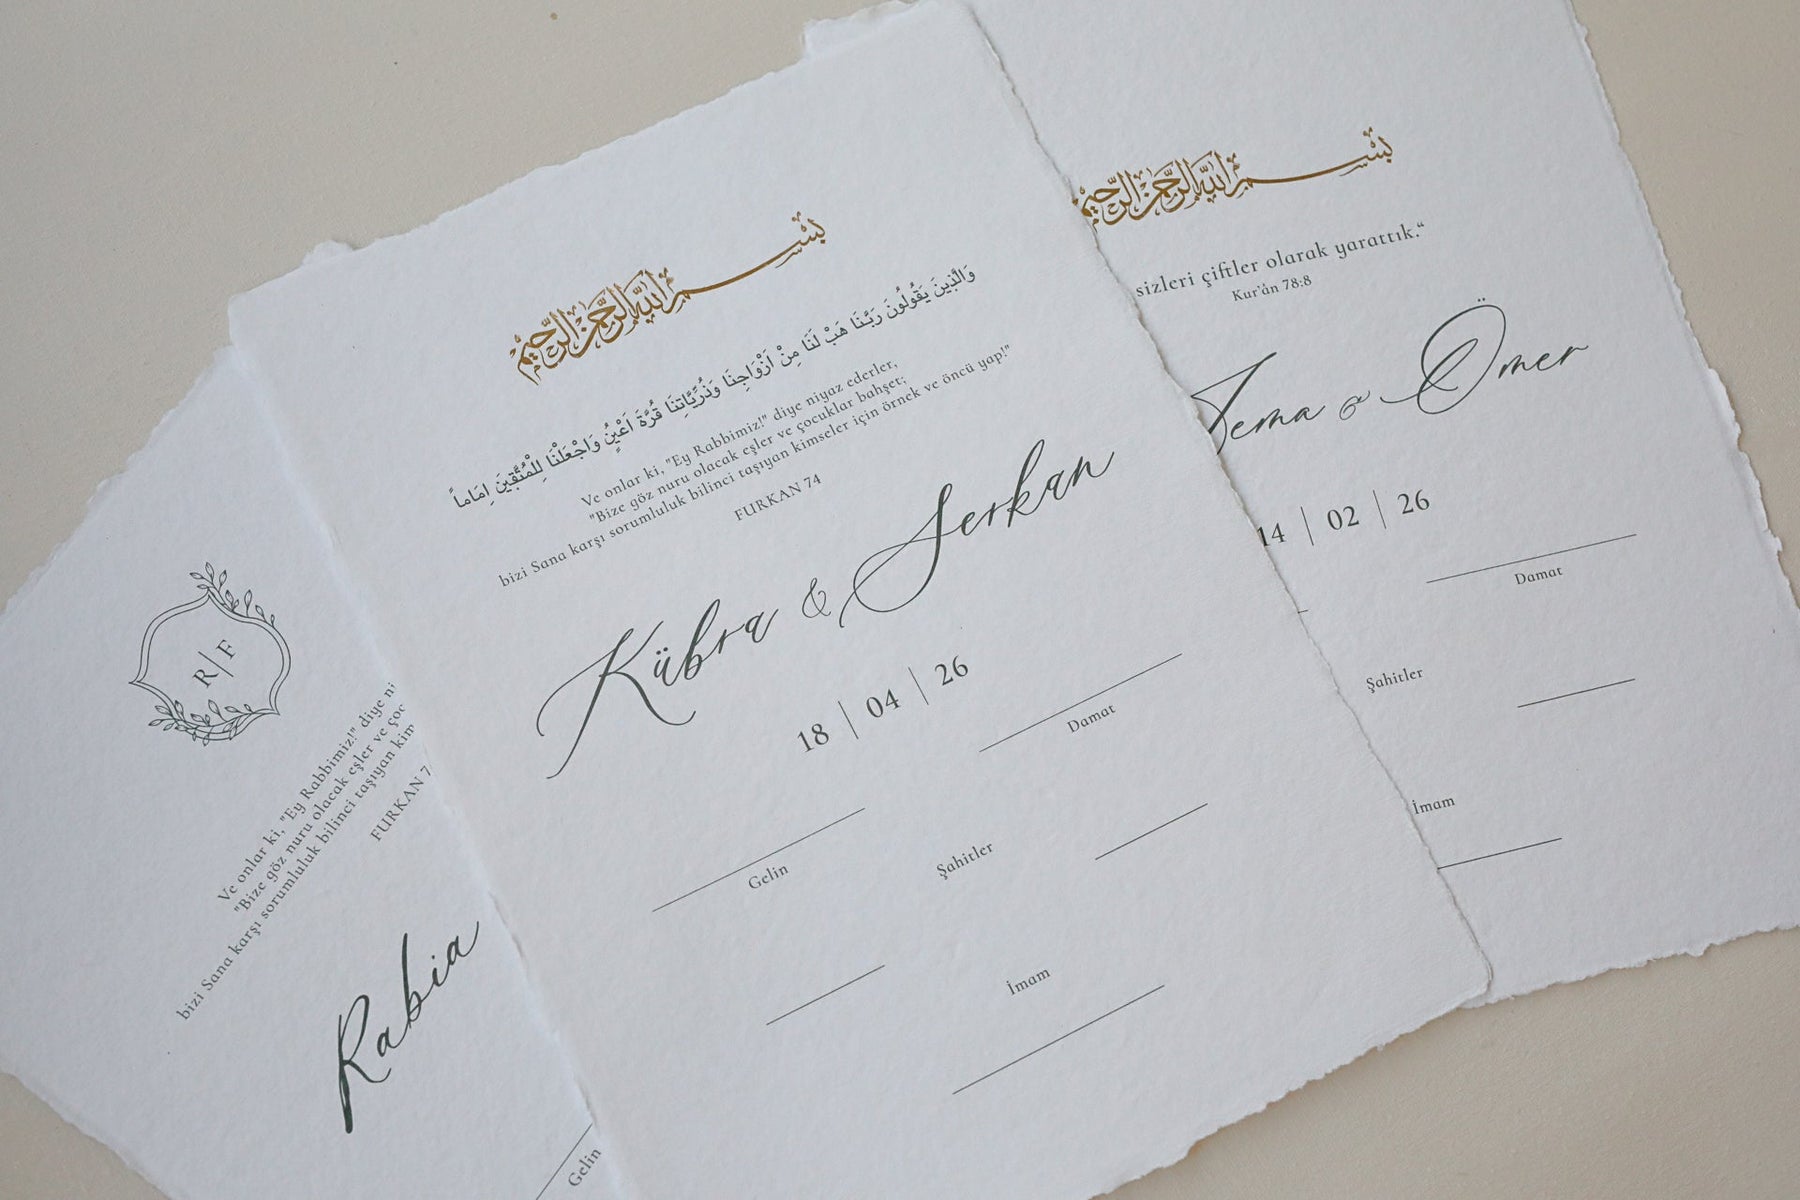 بسم الله الرحمن الرحيم
وَالَّذِينَ يَقُولُونَ رَبَّنَا هَبْ لَنَا مِنْ اَزْوَاجِنَا وَذُرِّيَّاتِنَا قُرَّةَ اَعْيُنٍ وَاجْعَلْنَا لِلْمُتَّقِينَ اِمَاماً
Ve onlar ki, "Ey Rabbimiz!" diye niyaz ederler,
"Bize göz nuru olacak eşler ve çocuklar bahşet;
bizi Sana karşı sorumluluk bilinci taşıyan kimseler için örnek ve öncü yap!"
FURKAN 74
Kübra & Serkan
18 | 04 | 26
Damat
Gelin
Şahitler
İmam
بسم الله الرحمن الرحيم
sizleri çiftler olarak yarattık.“
Kur'ân 78:8
& Ömer
14 | 02 | 26
Damat
Şahitler
İmam
R | F
Ve onlar ki, "Ey Rabbimiz!" diye ni
"Bize göz nuru olacak eşler ve çoc
bizi Sana karşı sorumluluk bilinci taşıyan kim
FURKAN 7
Rabia
Gelin